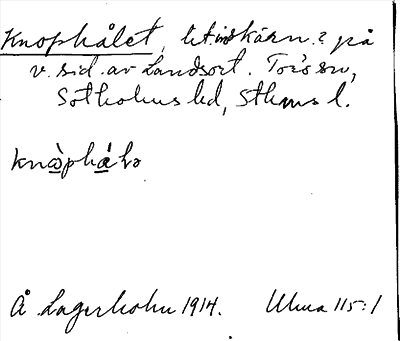 Knophålet, litet inskärn.? på
v. sid. av Landsort. Torö sn,
Sotholms hd, Sthms l.
knòphálə
Å Lagerholm 1914. Uluma 115:1